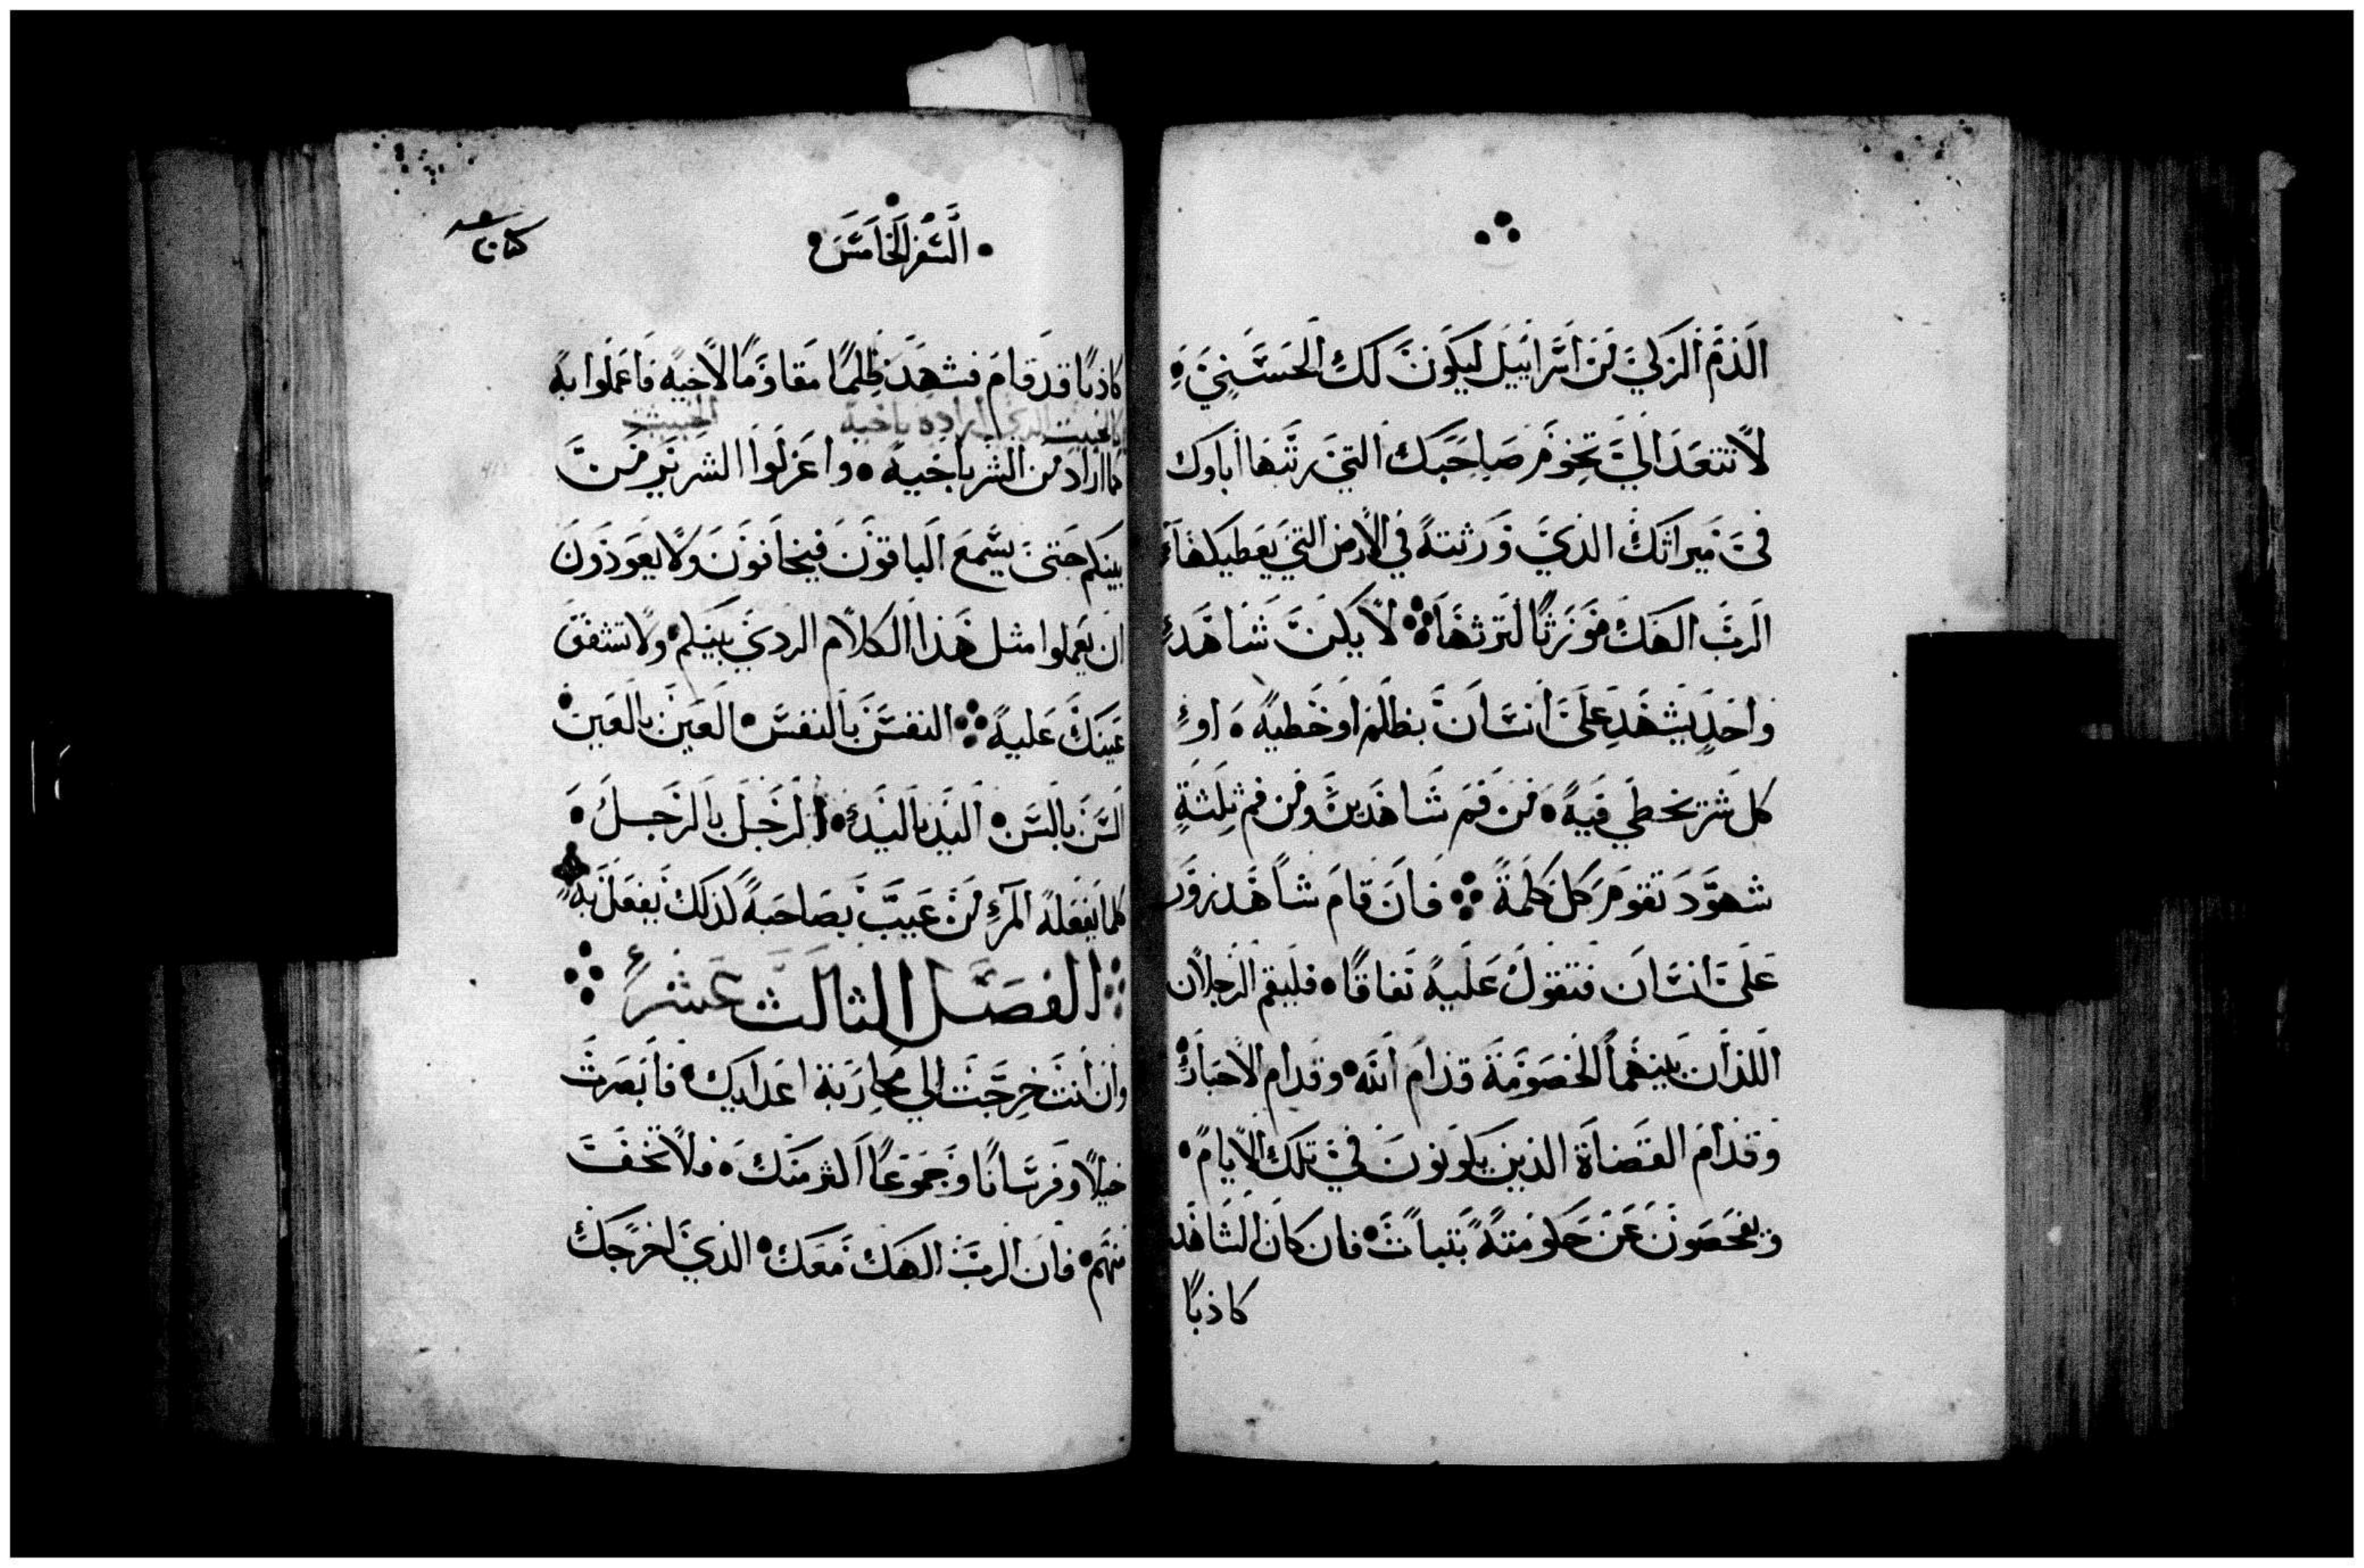 الدم الزكي من اسراييل ليكون لك الحسني
لا تتعدا الي تخوم صاحبك التي رتبها اباوك
في ميراثك الذي ورثته في الارض التي يعطيكها
الرب الهك موزرثا لترثها لا يكن شاهد
واحد يشهد علي انسان بظلم او خطيه او
كل شر يخطي فيه من فم شاهدين ومن فم ثلثة
شهود تقوم كل كلمة فان قام شاهد زور
علي انسان فتقول عليه نفاقا فليقم الرجلان
اللذان بينهما الخصومة قدام الله وقدام الاحبار
وقدام القضاة الذين يكونون في تلك الايام
ويفحصون عن حكومته بتبات فان كان الشاهد
كاذبا
السفر الخامس
كاذبا قد قام فشهد ظلما مقاوما لاخيه فاعملوا به
بالخبيث الذي اراده باخيه الخبيث
كما اراد من الشر باخيه واعزلوا الشرير من
بينكم حتي يسمع الباقون فيخافون ولا يعودون
ان يعملوا مثل هذا الكلام الردي بينكم ولا تشفق
عينك عليه النفس بالنفس العين بالعين
السن بالسن اليد باليد الرجل بالرجل
كلما يفعله المرء من عيب بصاحبه كذلك يفعل به
الفصل الثالث عشر
وان انت خرجت الي محاربة اعداييك فابصرت
خيلا وفرسانا وجموعا اكثر منك فلا تخف
منهم فان الرب الهك معك الذي اخرجك